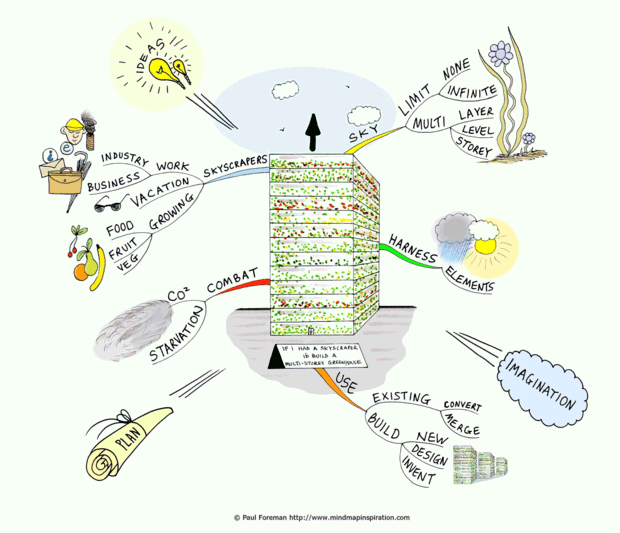 IDEAS
SKY
LIMIT
NONE
INFINITE
MULTI
LAYER
LEVEL
STOREY
SKYSCRAPERS
WORK
INDUSTRY
BUSINESS
VACATION
GROWING
FOOD
FRUIT
VEG
HARNESS
ELEMENTS
COMBAT
CO²
STARVATION
IF I HAD A SKYSCRAPER
ID BUILD A
MULTI-STOREY GREENHOUSE
USE
EXISTING
CONVERT
MERGE
BUILD
NEW
DESIGN
INVENT
IMAGINATION
PLAN
© Paul Foreman http://www.mindmapinspiration.com